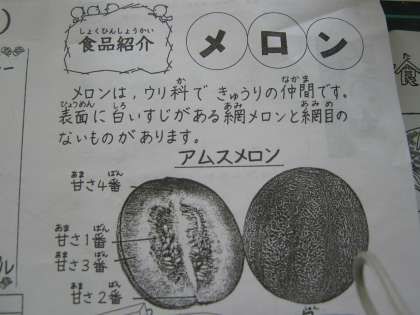 しょくひんしょうかい
食品紹介
メロン
メロンは、ウリ科で きゅうりの仲間です。
表面に白いすじがある網メロンと網目の
ないものがあります。
アムスメロン
甘さ4番
甘さ1番
甘さ3番
甘さ2番